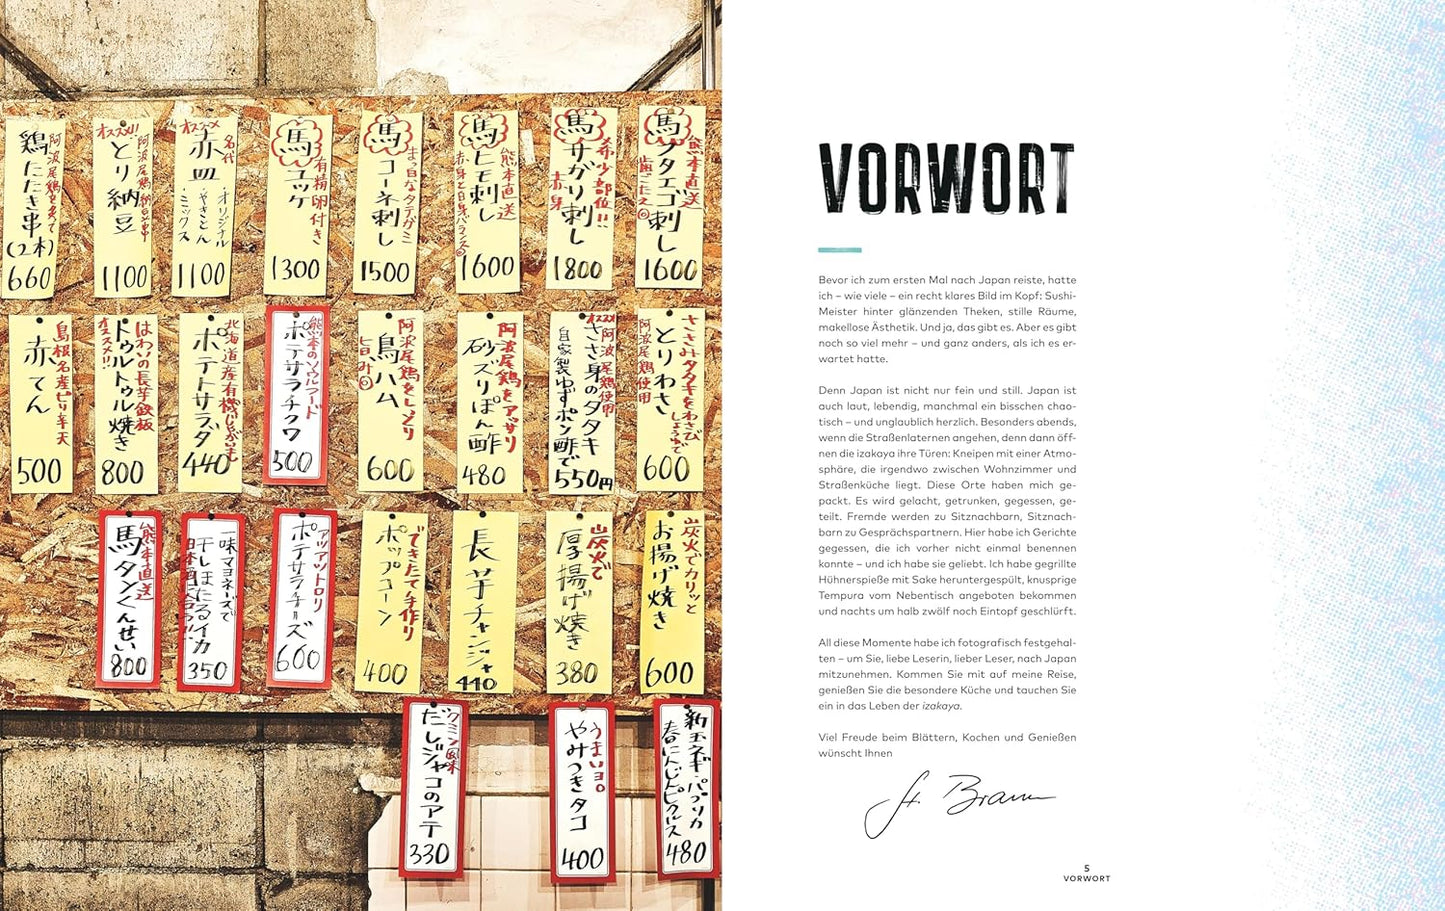 鶏たたき串
(2本)
阿波尾鶏を炙って
660
オススメ!!
とり納豆
阿波尾鶏納豆串
1100
オススメ
名代
赤皿
オリジナル
やきとん
ミックス
1100
馬
ユッケ
有精卵付き
1300
馬
コーネ刺し
まっ白なタテガミ
1500
馬
ヒモ刺し
熊本直送
赤身と白身バランス◎
1600
馬
サガリ刺し
希少部位!!
赤身
1800
馬
フタエゴ刺し
熊本直送
歯ごたえ◎
1600
赤てん
島根名産ピリ辛天
500
トゥルトゥル焼き
はわいの長芋鉄板
オススメ!!
800
ポテトサラダ
北海道産有機じゃがいも
440
ポテサラチクワ
熊本のソウルフード
500
鳥ハム
阿波尾鶏をしとり
旨み◎
600
砂ズリぽん酢
阿波尾鶏をアッサリ
480
オススメ
ささ身のタタキ
阿波尾鶏使用
自家製ゆずポン酢で
550円
とりわさ
ささみタタキをわさび
しょうゆで
阿波尾鶏使用
600
馬タンくんせい
熊本直送
800
一味マヨネーズで
干しほたるイカ
日本酒に合う!!
350
ポテサラチーズ
アツアツトロリ
600
ポップコーン
できたて手作り
400
長芋チャンジャ
440
厚揚げ焼き
炭火で
380
お揚げ焼き
炭火でカリッと
600
だしジャコのアテ
クミン風味
330
やみつきタコ
うまいヨ。
400
新玉ネギ・パプリカ
春にんじんピクルス
480
VORWORT
Bevor ich zum ersten Mal nach Japan reiste, hatte
ich – wie viele – ein recht klares Bild im Kopf: Sushi-
Meister hinter glänzenden Theken, stille Räume,
makellose Ästhetik. Und ja, das gibt es. Aber es gibt
noch so viel mehr – und ganz anders, als ich es er-
wartet hatte.
Denn Japan ist nicht nur fein und still. Japan ist
auch laut, lebendig, manchmal ein bisschen chao-
tisch – und unglaublich herzlich. Besonders abends,
wenn die Straßenlaternen angehen, denn dann öff-
nen die izakaya ihre Türen: Kneipen mit einer Atmo-
sphäre, die irgendwo zwischen Wohnzimmer und
Straßenküche liegt. Diese Orte haben mich ge-
packt. Es wird gelacht, getrunken, gegessen, ge-
teilt. Fremde werden zu Sitznachbarn, Sitznach-
barn zu Gesprächspartnern. Hier habe ich Gerichte
gegessen, die ich vorher nicht einmal benennen
konnte – und ich habe sie geliebt. Ich habe gegrillte
Hühnerspieße mit Sake heruntergespült, knusprige
Tempura vom Nebentisch angeboten bekommen
und nachts um halb zwölf noch Eintopf geschlürft.
All diese Momente habe ich fotografisch festgehal-
ten – um Sie, liebe Leserin, lieber Leser, nach Japan
mitzunehmen. Kommen Sie mit auf meine Reise,
genießen Sie die besondere Küche und tauchen Sie
ein in das Leben der izakaya.
Viel Freude beim Blättern, Kochen und Genießen
wünscht Ihnen
St. Braun
5
VORWORT